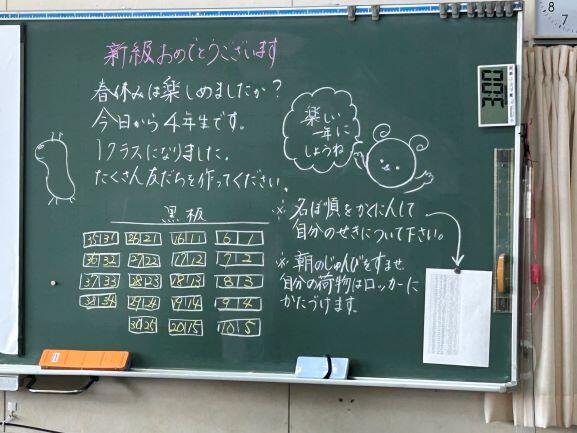 新級おめでとうございます
春休みは楽しめましたか?
今日から4年生です。
1クラスになりました。
たくさん友だちを作ってください。
楽しい
一年に
しようね
黒板
35 31 26 21 16 11 6 1
36 32 27 22 17 12 7 2
37 33 28 23 18 13 8 3
38 34 29 24 19 14 9 4
30 25 20 15 10 5
※名ぼ順をかくにんして
自分のせきについて下さい。
※朝のじゅんびをすませ
自分の荷物はロッカーに
かたづけます。
8
7